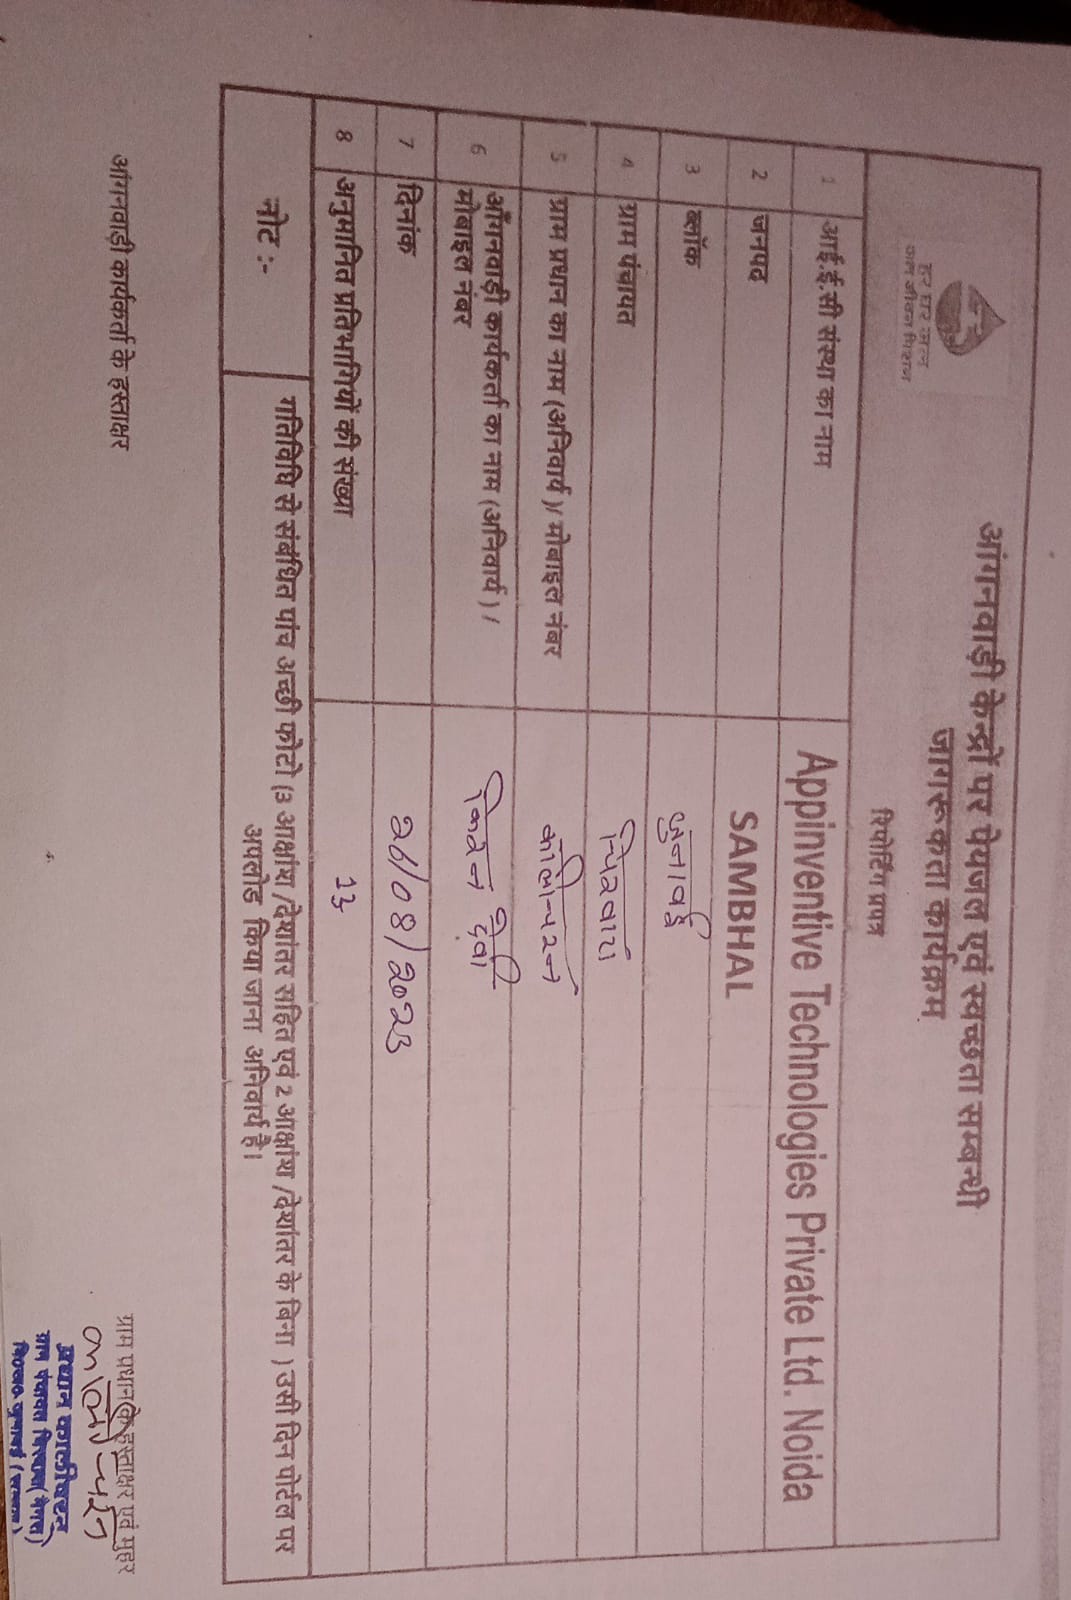 हर घर जल
जल जीवन मिशन
आंगनवाड़ी केन्द्रों पर पेयजल एवं स्वच्छता सम्बन्धी
जागरूकता कार्यक्रम
रिपोर्टिंग प्रपत्र
1 आई.ई.सी संस्था का नाम Appinventive Technologies Private Ltd. Noida
2 जनपद SAMBHAL
3 ब्लॉक जुनावई
4 ग्राम पंचायत
5 ग्राम प्रधान का नाम (अनिवार्य)/ मोबाइल नंबर कालीचरन
6 आँगनवाड़ी कार्यकर्ता का नाम (अनिवार्य) /
मोबाइल नंबर देवी
7 दिनांक 26/08/2023
8 अनुमानित प्रतिभागियों की संख्या 23
नोट :- गतिविधि से संबंधित पांच अच्छी फोटो (3 आक्षांश /देशांतर सहित एवं 2 आक्षांश /देशांतर के बिना ) उसी दिन पोर्टल पर
अपलोड किया जाना अनिवार्य है।
आंगनवाड़ी कार्यकर्ता के हस्ताक्षर
ग्राम प्रधान के हस्ताक्षर एवं मुहर
कालीचरन
प्रधान कालीचरन
ग्राम पंचायत